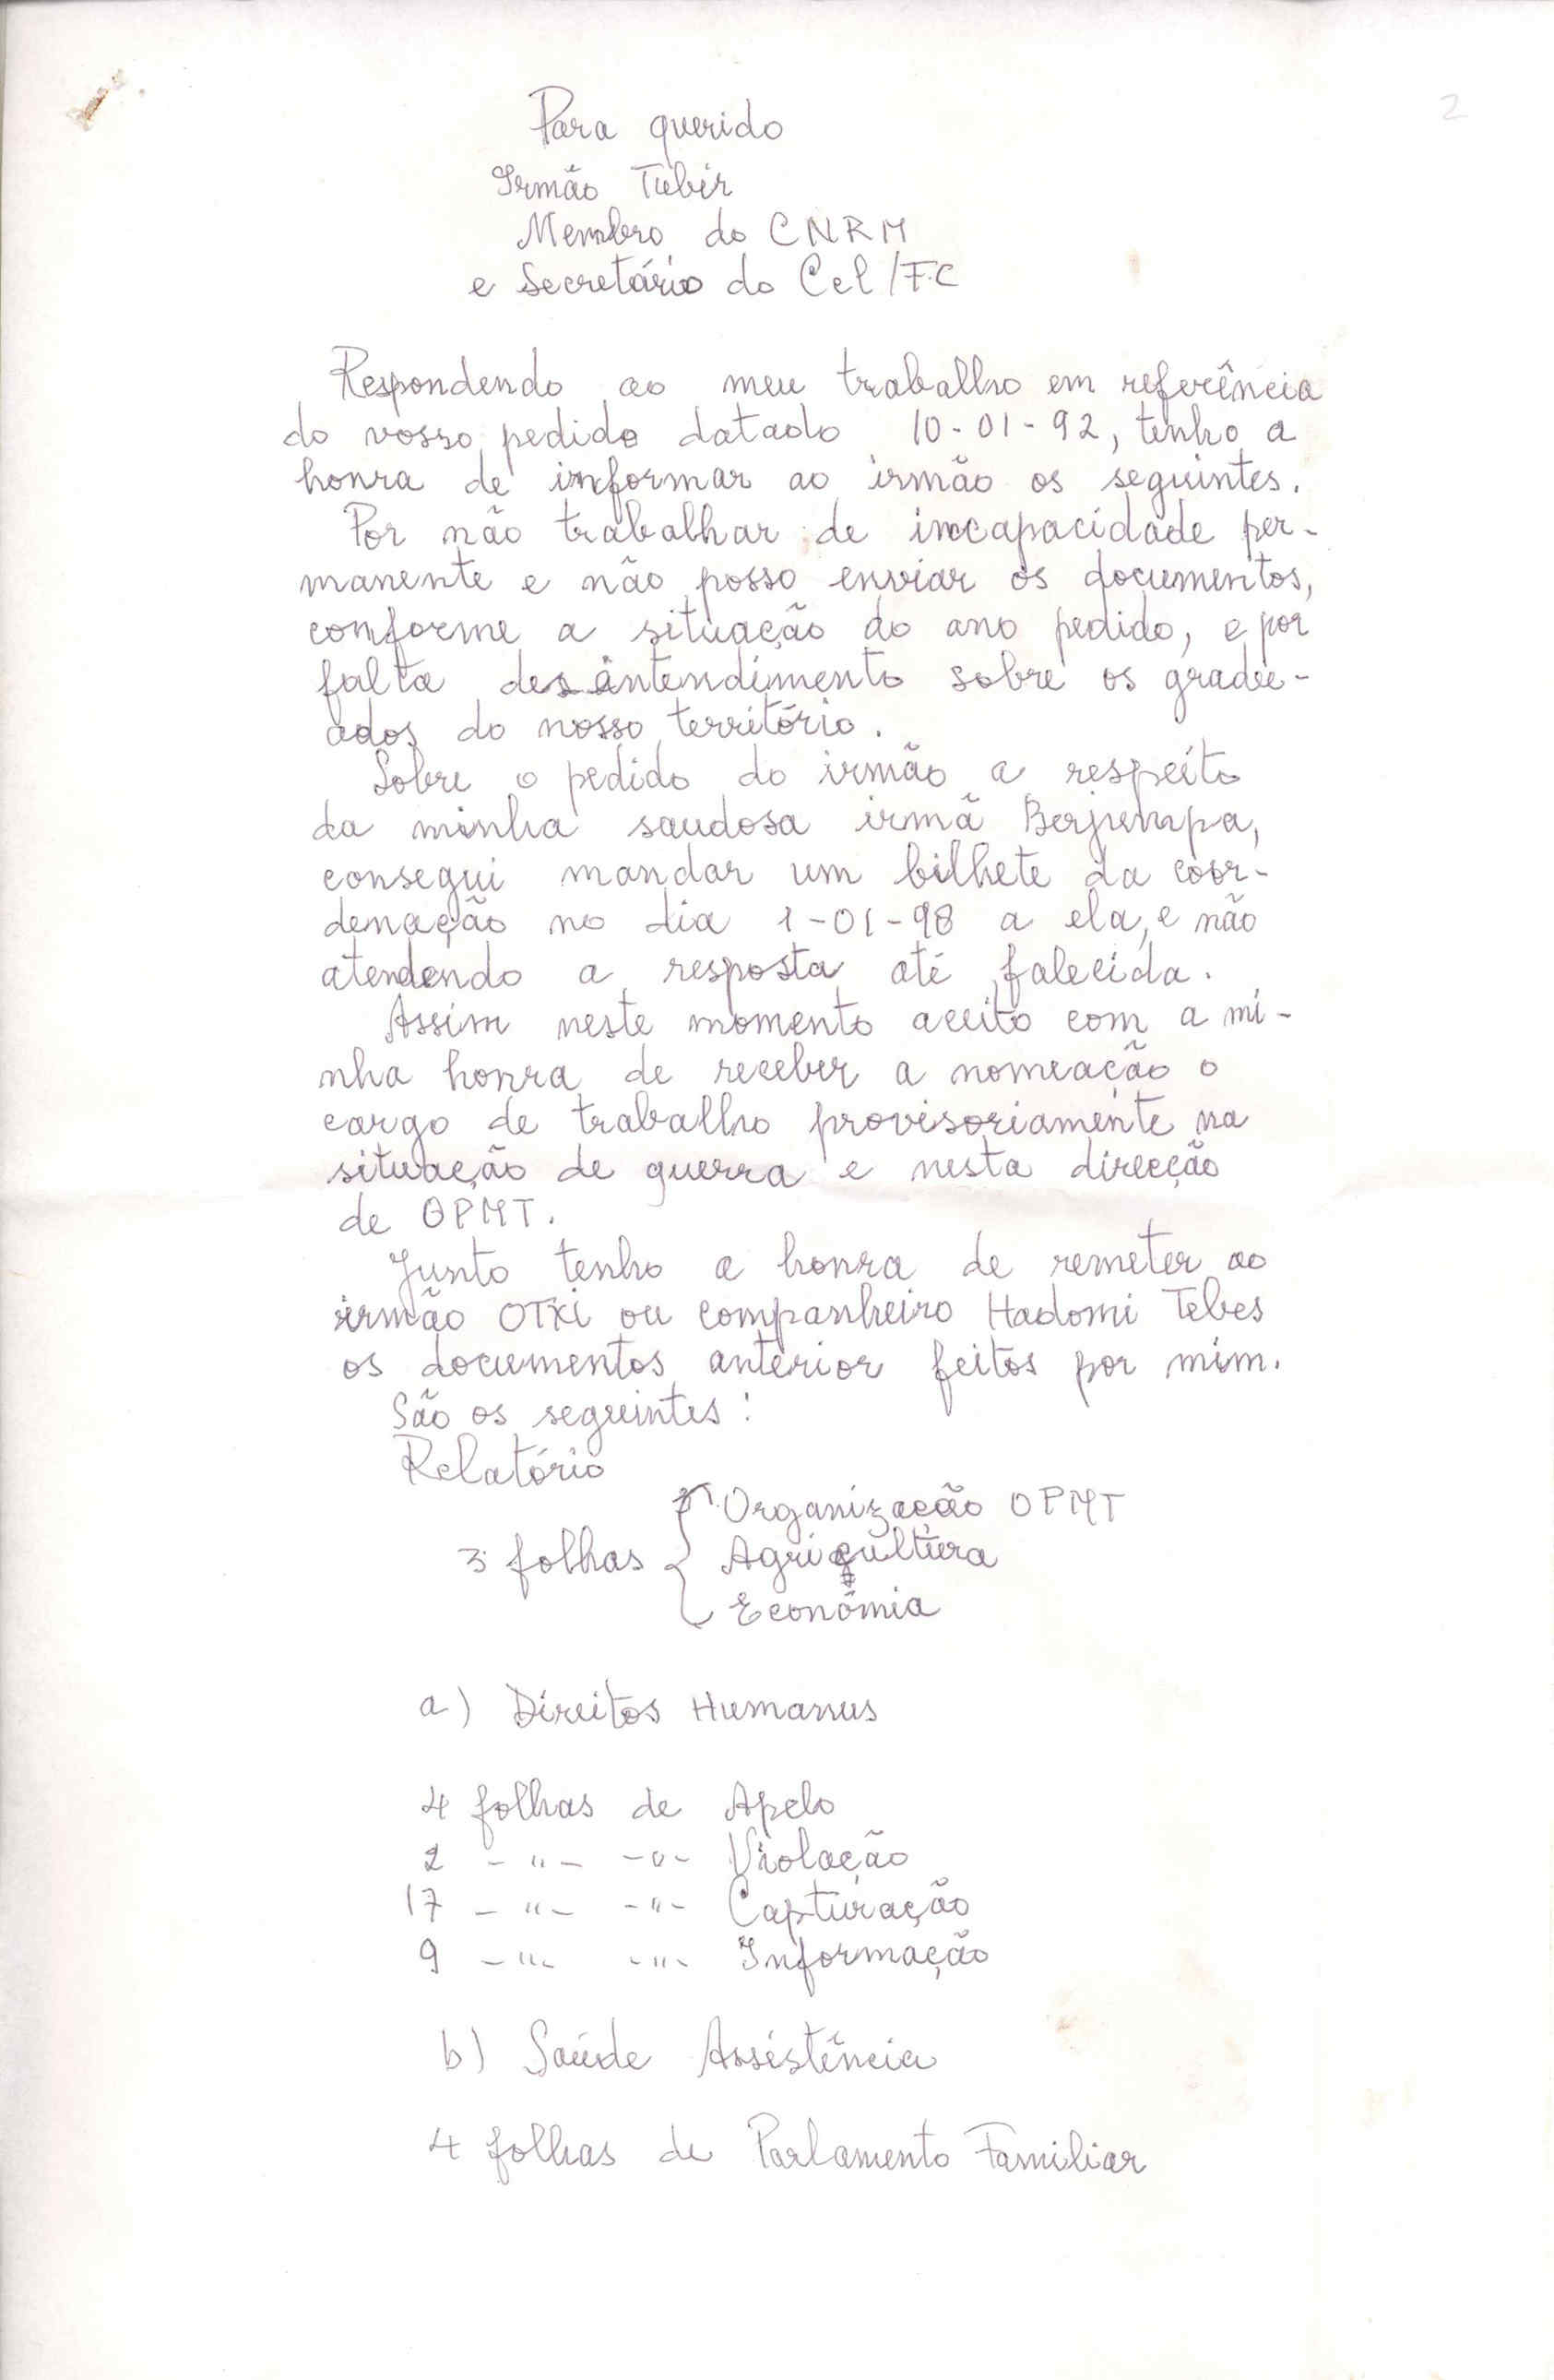 2
Para querido
Irmão Tubir
Membro do CNRM
e Secretário do Cel/FC
Respondendo ao meu trabalho em referência
do vosso pedido datado 10-01-92, tenho a
honra de informar ao irmão os seguintes.
Por não trabalhar de incapacidade per-
manente e não posso enviar os documentos,
conforme a situação do ano pedido, e por
falta desintendimento sobre os gradu-
ados do nosso território.
Sobre o pedido do irmão a respeito
da minha saudosa irmã
consegui mandar um bilhete da coor-
denação no dia 1-01-98 a ela, e não
atendendo a resposta até falecida.
Assim neste momento aceito com a mi-
nha honra de receber a nomeação o
cargo de trabalho provisoriamente na
situação de guerra e nesta direcção
de OPMT.
Junto tenho a honra de remeter ao
irmão OTXi ou companheiro Hadomi Tebes
os documentos anterior feitos por mim.
São os seguintes:
Relatório
Organização OPMT
3 folhas { Agricultura
Económia
a) Direitos Humanus
4 folhas de Apelo
2 -"- -"- Violação
17 -"- -"- Capturação
9 -"- -"- Informação
b) Saúde Assistência
4 folhas de Parlamento Familiar